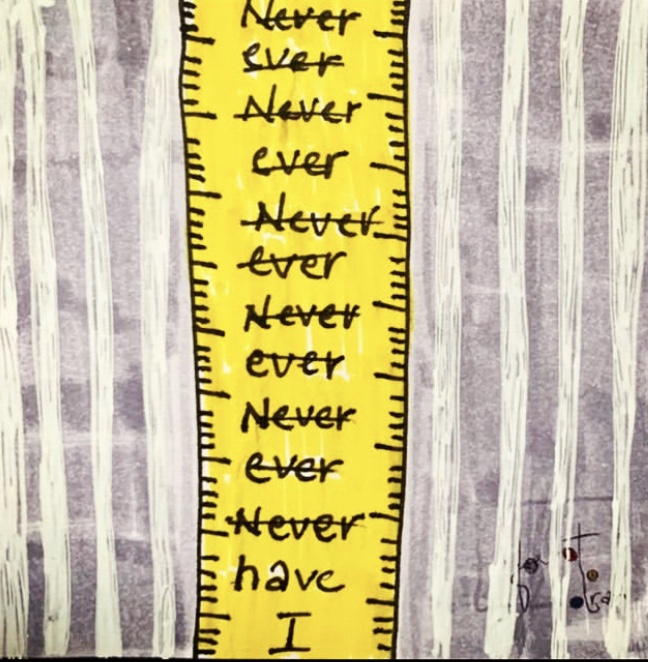 Never
ever
Never
ever
Never
ever
Never
ever
Never
ever
Never
have
I